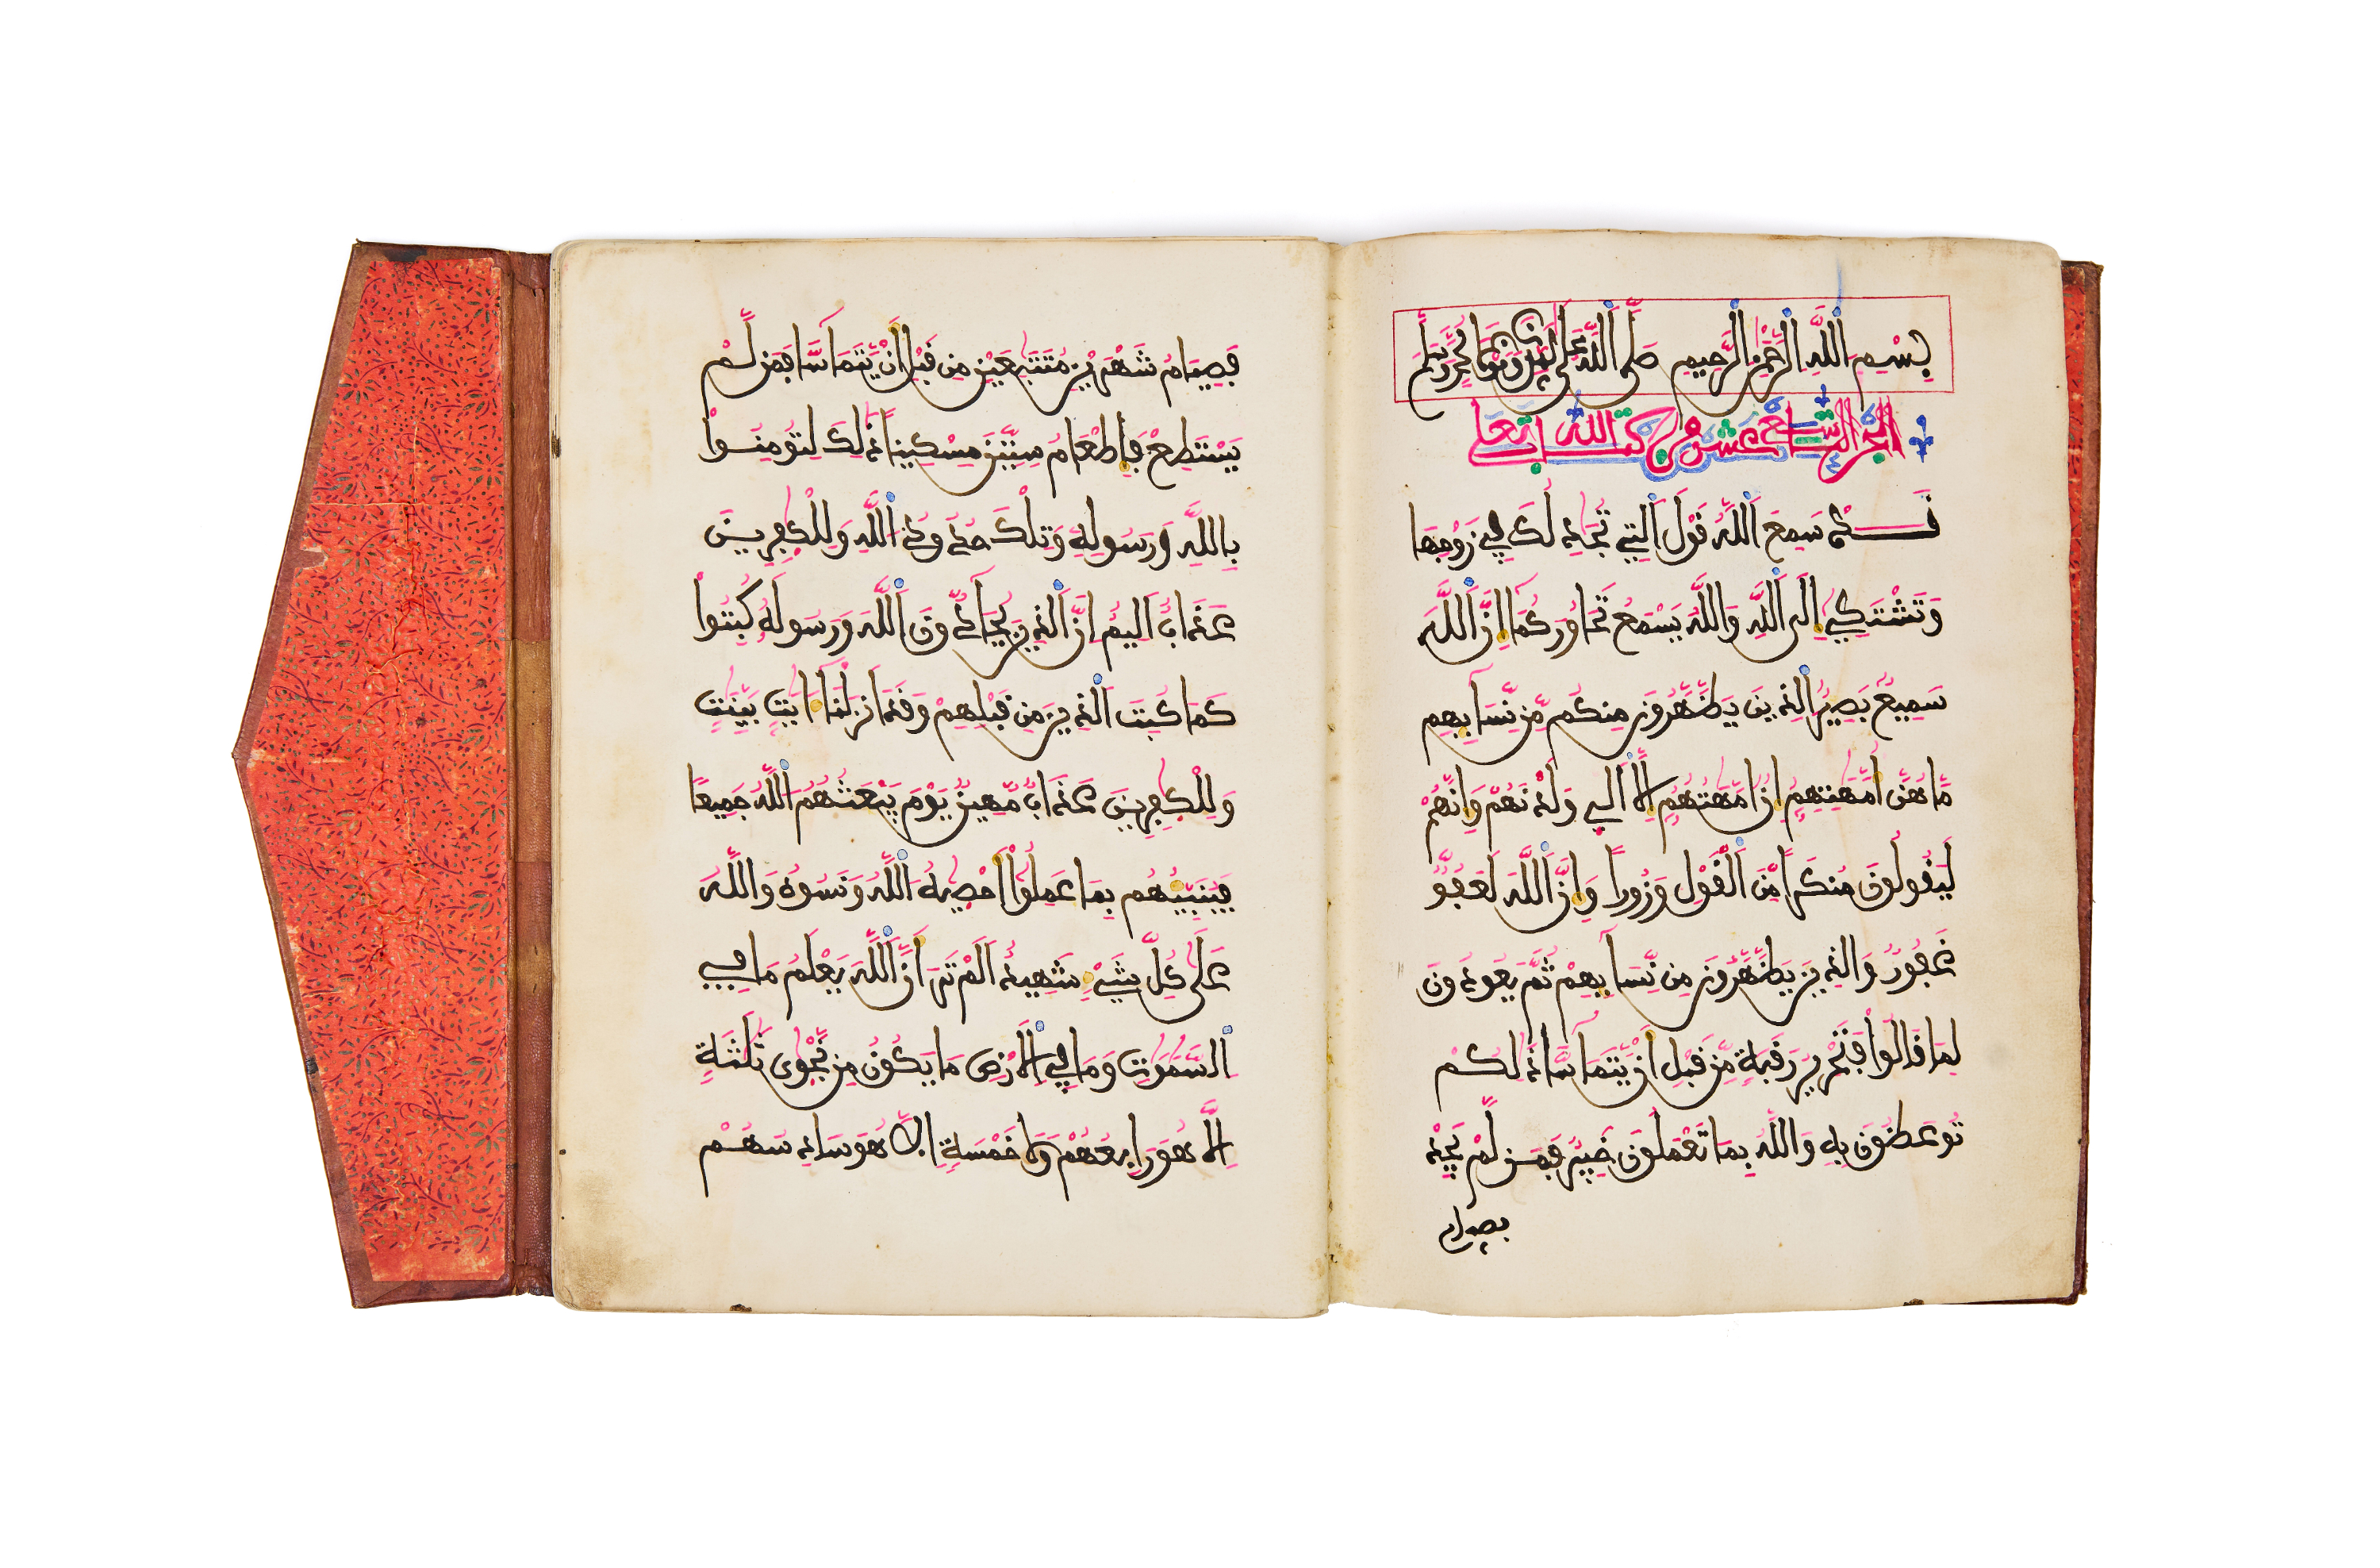 بسم الله الرحمن الرحيم صلى الله على محمد وسلم
الجزء التاسع عشر من كتاب الله تعلى
قد سمع الله قول التي تجدلك في زوجها
وتشتكي إلى الله والله يسمع تحاوركما إن الله
سميع بصير الذين يظهرون منكم من نسايهم
ما هن أمهتهم إن أمهتهم إلا الي ولدنهم وإنهم
ليقولون منكرا من القول وزورا وإن الله لعفو
غفور والذين يظهرون من نسايهم ثم يعودون
لما قالوا فتحرير رقبة من قبل أن يتماسا ذلكم
توعظون به والله بما تعملون خبير فمن لم يجد
فصيام
فصيام شهرين متتبعين من قبل أن يتماسا فمن لم
يستطع فإطعام ستين مسكينا ذلك لتومنوا
بالله ورسوله وتلك حدود الله وللكفرين
عذاب اليم إن الذين يحادون الله ورسوله كبتوا
كما كبت الذين من قبلهم وقد انزلنا ءايت بينت
وللكفرين عذاب مهين يوم يبعثهم الله جميعا
فينبيهم بما عملوا احصيه الله ونسوه والله
على كل شيء شهيد الم تر أن الله يعلم ما في
السموت وما في الارض ما يكون من نجوى ثلثة
إلا هو رابعهم ولا خمسة الا هو سادسهم